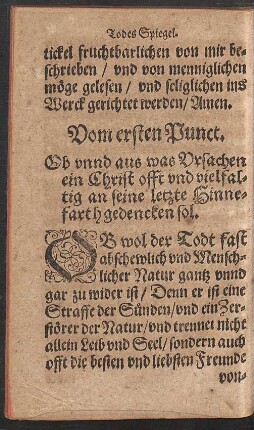 Todes Spiegel.
tickel fruchtbarlichen von mir be-
schrieben / vnd von menniglichen
möge gelesen / vnd seliglichen ins
Werck gerichtet werden / Amen.
Vom ersten Punct.
Ob vnnd aus was Vrsachen
ein Christ offt vnd vielfal-
tig an seine letzte Hinne-
farth gedencken sol.
OB wol der Todt fast
abschewlich vnd Mensch-
licher Natur gantz vnnd
gar zu wider ist / Denn er ist eine
Straffe der Sünden / vnd ein Zer-
störer der Natur / vnd trennet nicht
allein Leib vnd Seel / sondern auch
offt die besten vnd liebsten Freunde
von-